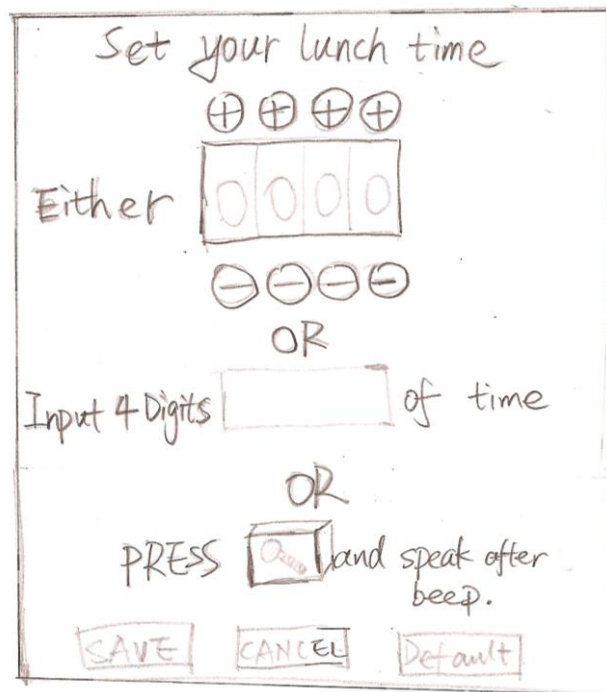 Set your lunch time
+ + + +
Either 0 0 0 0
- - - -
OR
Input 4 Digits of time
OR
PRESS and speak after
beep.
SAVE CANCEL Default